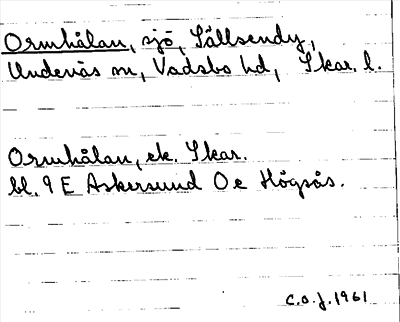 Ormhålan, sjö, Sällsendy,
Undenäs sn, Vadsbo hd, Skar. l.
Ormhålan, ek. Skar.
bl. 9 E Askersund Oe Högsås.
C.O.J. 1961